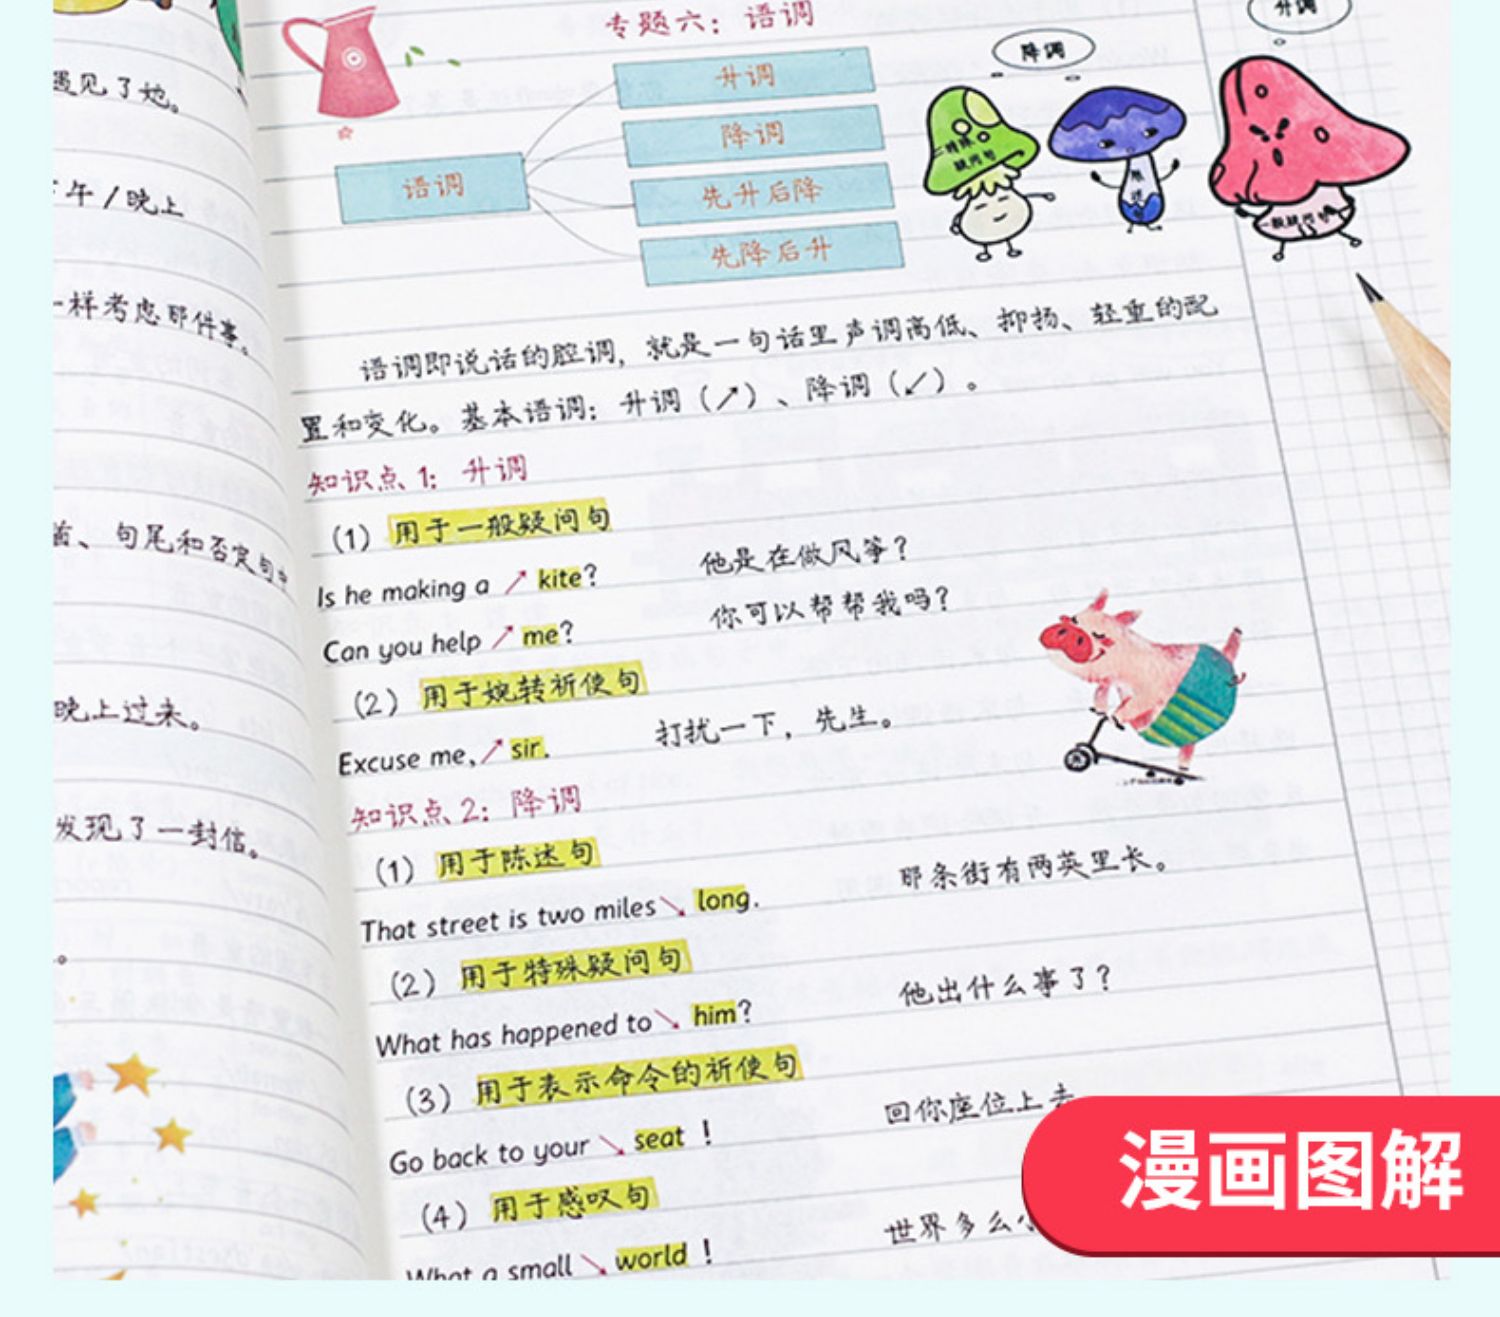 专题六：语调
升调
降调
先升后降
先降后升
语调
降调
升调
语调即说话的腔调，就是一句话里声调高低、抑扬、轻重的配
置和变化。基本语调：升调（↗）、降调（↙）。
知识点1：升调
（1）用于一般疑问句
Is he making a ↗ kite? 他是在做风筝？
Can you help ↗ me? 你可以帮帮我吗？
（2）用于婉转祈使句
Excuse me, ↗ sir. 打扰一下，先生。
知识点2：降调
（1）用于陈述句
That street is two miles ↘ long. 那条街有两英里长。
（2）用于特殊疑问句
What has happened to ↘ him? 他出什么事了？
（3）用于表示命令的祈使句
Go back to your ↘ seat ! 回你座位上去
（4）用于感叹句
What a small ↘ world ! 世界多么小
遇见了她。
午/晚上
一样考虑那件事。
首、句尾和否定句中
晚上过来。
发现了一封信。
漫画图解